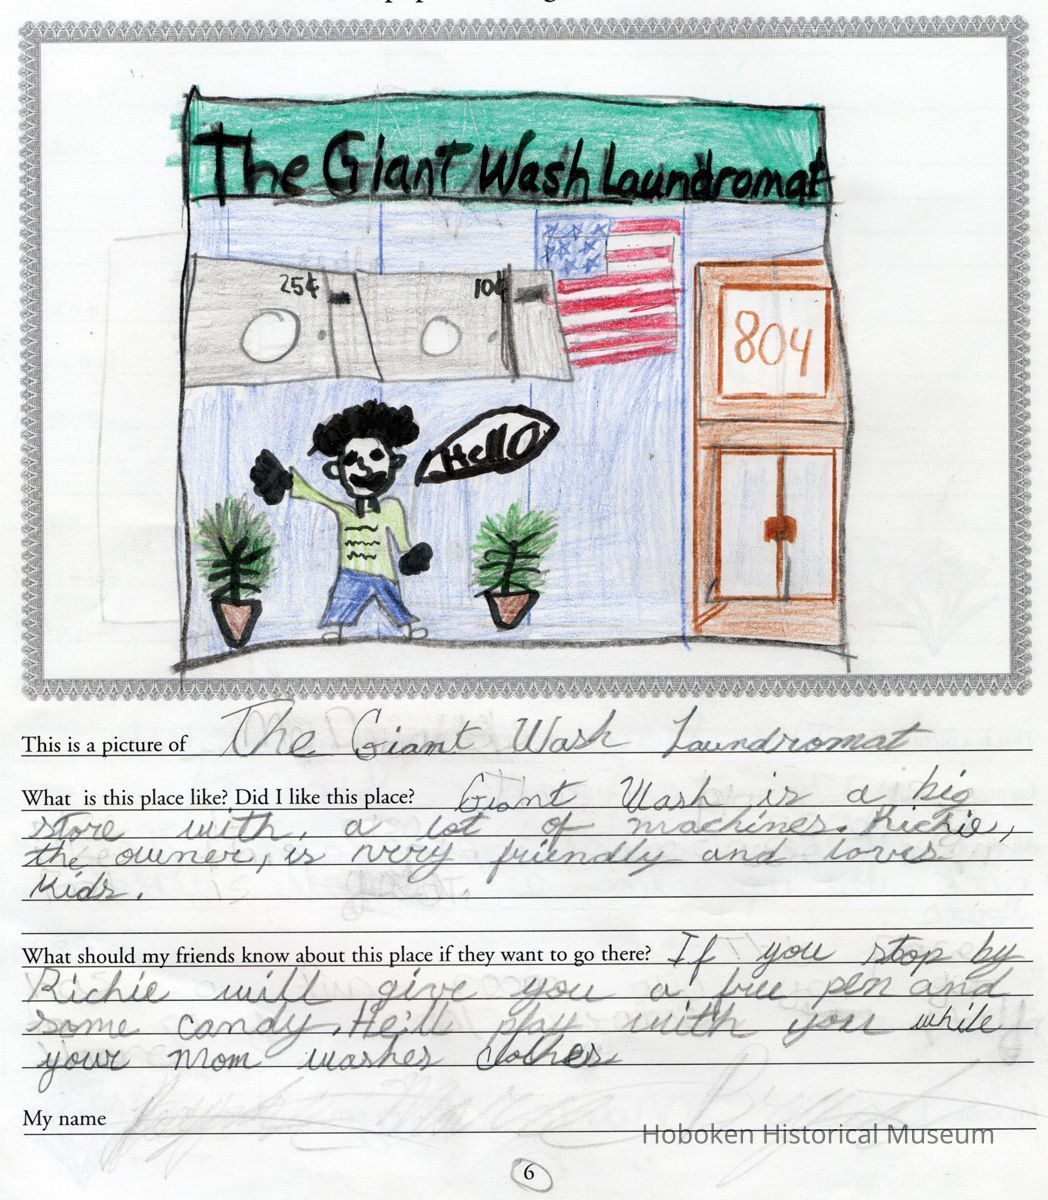 The Giant Wash Laundromat
25¢
10¢
804
Hello
This is a picture of The Giant Wash Laundromat
What is this place like? Did I like this place? Giant Wash is a big
store with, a lot of machines. Richie,
the owner, is very friendly and loves
kids.
What should my friends know about this place if they want to go there? If you stop by
Richie will give you a free pen and
some candy. He'll play with you while
your mom washes clothes
My name
Hoboken Historical Museum
6